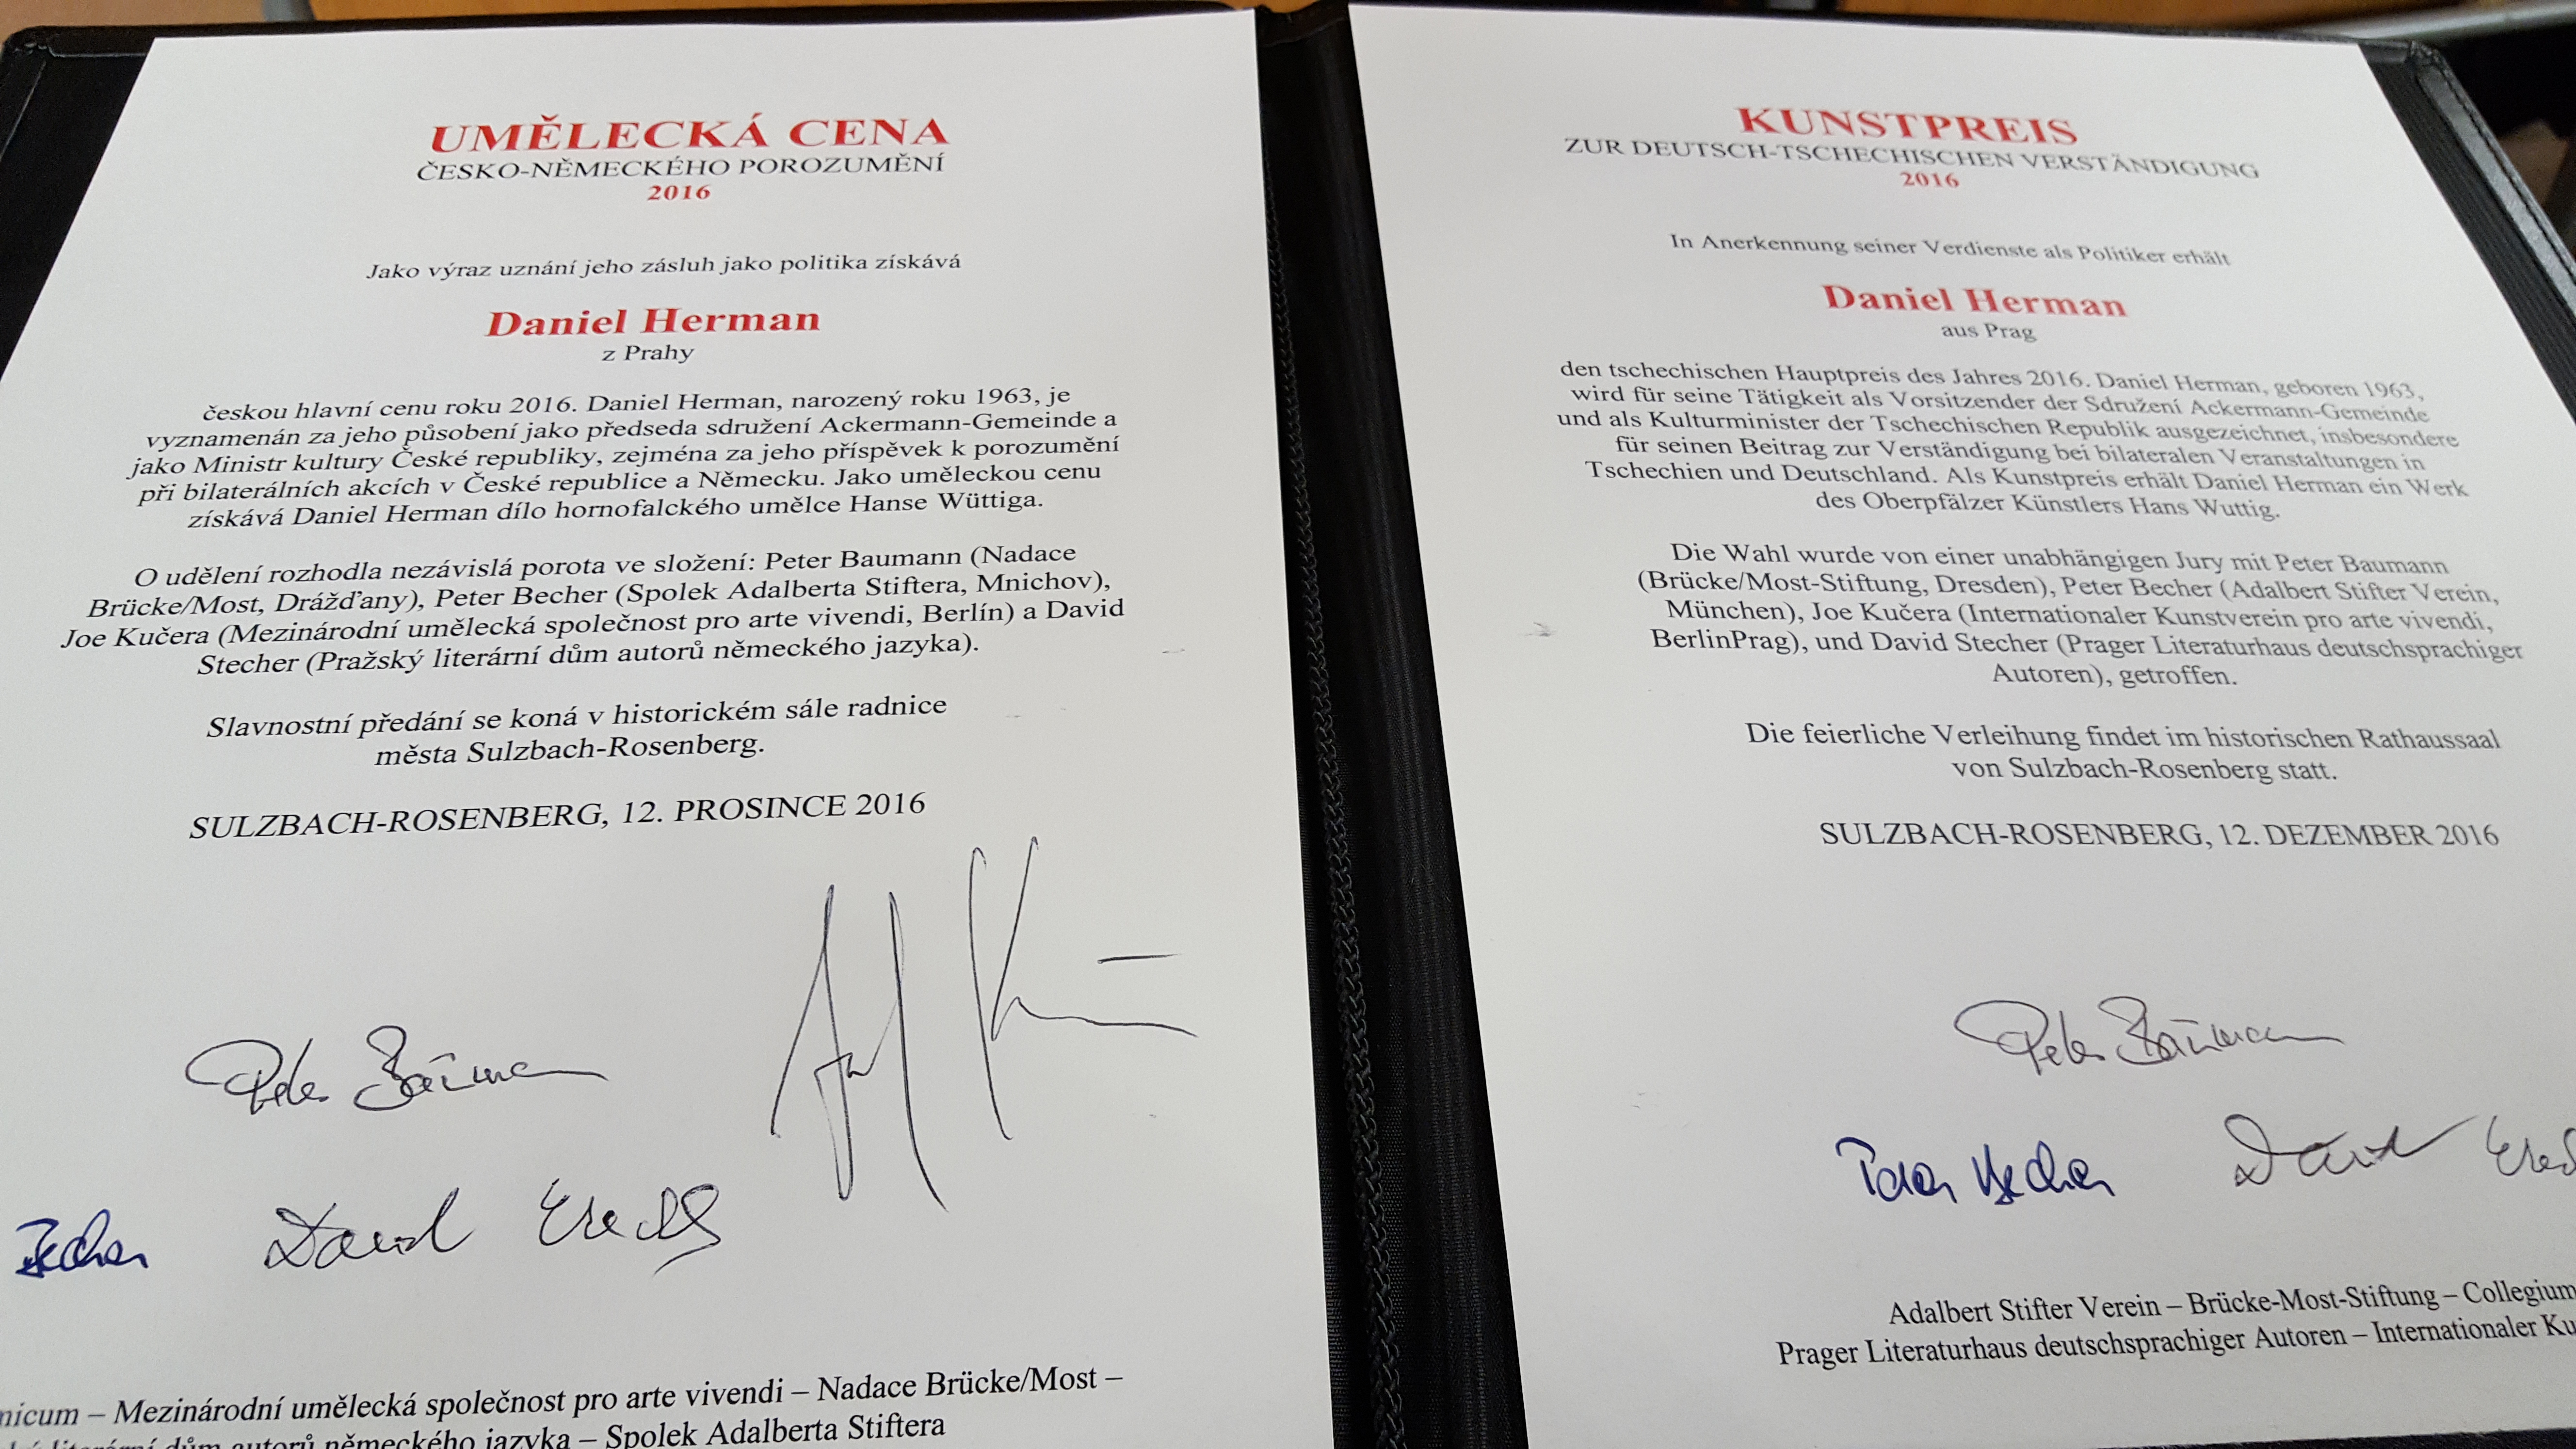 UMĚLECKÁ CENA
ČESKO-NĚMECKÉHO POROZUMĚNÍ
2016
Jako výraz uznání jeho zásluh jako politika získává
Daniel Herman
z Prahy
českou hlavní cenu roku 2016. Daniel Herman, narozený roku 1963, je
vyznamenán za jeho působení jako předseda sdružení Ackermann-Gemeinde a
jako Ministr kultury České republiky, zejména za jeho příspěvek k porozumění
při bilaterálních akcích v České republice a Německu. Jako uměleckou cenu
získává Daniel Herman dílo hornofalckého umělce Hanse Wüttiga.
O udělení rozhodla nezávislá porota ve složení: Peter Baumann (Nadace
Brücke/Most, Drážďany), Peter Becher (Spolek Adalberta Stiftera, Mnichov),
Joe Kučera (Mezinárodní umělecká společnost pro arte vivendi, Berlín) a David
Stecher (Pražský literární dům autorů německého jazyka).
Slavnostní předání se koná v historickém sále radnice
města Sulzbach-Rosenberg.
SULZBACH-ROSENBERG, 12. PROSINCE 2016
Peter Baumann
Becher David Stecher
nicum – Mezinárodní umělecká společnost pro arte vivendi – Nadace Brücke/Most –
literární dům autorů německého jazyka – Spolek Adalberta Stiftera
KUNSTPREIS
ZUR DEUTSCH-TSCHECHISCHEN VERSTÄNDIGUNG
2016
In Anerkennung seiner Verdienste als Politiker erhält
Daniel Herman
aus Prag
den tschechischen Hauptpreis des Jahres 2016. Daniel Herman, geboren 1963,
wird für seine Tätigkeit als Vorsitzender der Sdružení Ackermann-Gemeinde
und als Kulturminister der Tschechischen Republik ausgezeichnet, insbesondere
für seinen Beitrag zur Verständigung bei bilateralen Veranstaltungen in
Tschechien und Deutschland. Als Kunstpreis erhält Daniel Herman ein Werk
des Oberpfälzer Künstlers Hans Wuttig.
Die Wahl wurde von einer unabhängigen Jury mit Peter Baumann
(Brücke/Most-Stiftung, Dresden), Peter Becher (Adalbert Stifter Verein,
München), Joe Kučera (Internationaler Kunstverein pro arte vivendi,
BerlinPrag), und David Stecher (Prager Literaturhaus deutschsprachiger
Autoren), getroffen.
Die feierliche Verleihung findet im historischen Rathaussaal
von Sulzbach-Rosenberg statt.
SULZBACH-ROSENBERG, 12. DEZEMBER 2016
Peter Baumann
Peter Becher David
Adalbert Stifter Verein – Brücke-Most-Stiftung – Collegium
Prager Literaturhaus deutschsprachiger Autoren – Internationaler Ku